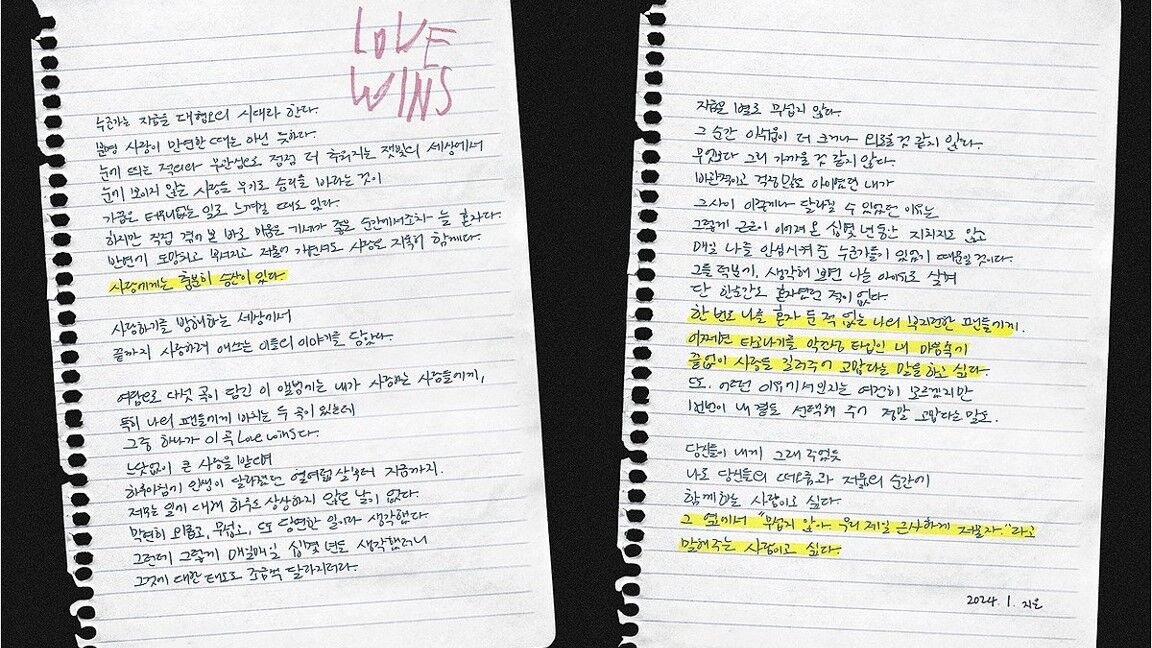 LOVE
WINS
누군가는 지금을 대혐오의 시대라 한다.
분명 사랑이 만연한 때는 아닌 듯하다.
눈에 띄는 적의와 무관심으로 점점 더 추워지는 잿빛의 세상에서
눈에 보이지 않는 사랑을 무기로 승리를 바라는 것이
가끔은 터무니없는 일로 느껴질 때도 있다.
하지만 직접 겪어 본 바로 미움은 기세가 좋을 순간에서조차 늘 혼자다.
반면에 도망치고 부서지고 저물어 가면서도 사랑은 지독히 함께다.
사랑에게는 충분히 승산이 있다.
사랑하기를 방해하는 세상에서
끝까지 사랑하려 애쓰는 이들의 이야기를 담았다.
여담으로 다섯 곡이 담긴 이 앨범에는 내가 사랑하는 사람들에게,
특히 나의 팬들에게 바치는 두 곡이 있는데
그중 하나가 이 곡 Love wins다.
느닷없이 큰 사랑을 받으며
하루아침에 인생이 달라졌던 열여덟 살부터 지금까지.
저무는 일에 대해 하루도 상상하지 않은 날이 없다.
막연히 외롭고, 무섭고, 또 당연한 일이라 생각했다.
그런데 그렇게 매일매일 십몇 년도 생각했더니
그것에 대한 태도도 조금씩 달라지더라.
지금은 별로 무섭지 않다.
그 순간 아쉬움이 더 크거나 외로울 것 같지 않다.
무엇보다 그리 가까울 것 같지 않다.
비관적이고 걱정 많던 아이였던 내가
그 사이 이렇게나 달라질 수 있었던 이유는
그렇게 근근이 이어져 온 십몇 년 동안 지치지도 않고
매일 나를 안심시켜 준 누군가들이 있었기 때문일 것이다.
그들 덕분에, 생각해 보면 나는 아이유로 살며
단 한순간도 혼자였던 적이 없다.
한 번도 나를 혼자 둔 적 없는 나의 부지런한 팬들에게.
어쩌면 타고나기를 악건성 타입인 내 마음속에
끝없이 사랑을 길러주어 고맙다는 말을 하고 싶다.
또. 어떤 이유에서인지는 여전히 모르겠지만
1번번이 내 곁을 선택해 주어 정말 고맙다는 말도.
당신들이 내게 그래 주었듯
나도 당신들의 떠오름과 저묾의 순간에
함께하는 사람이고 싶다.
그 옆에서 "무섭지 않아. 우리 제일 근사하게 저물자."라고
말해주는 사람이고 싶다.
2024. 1. 지은